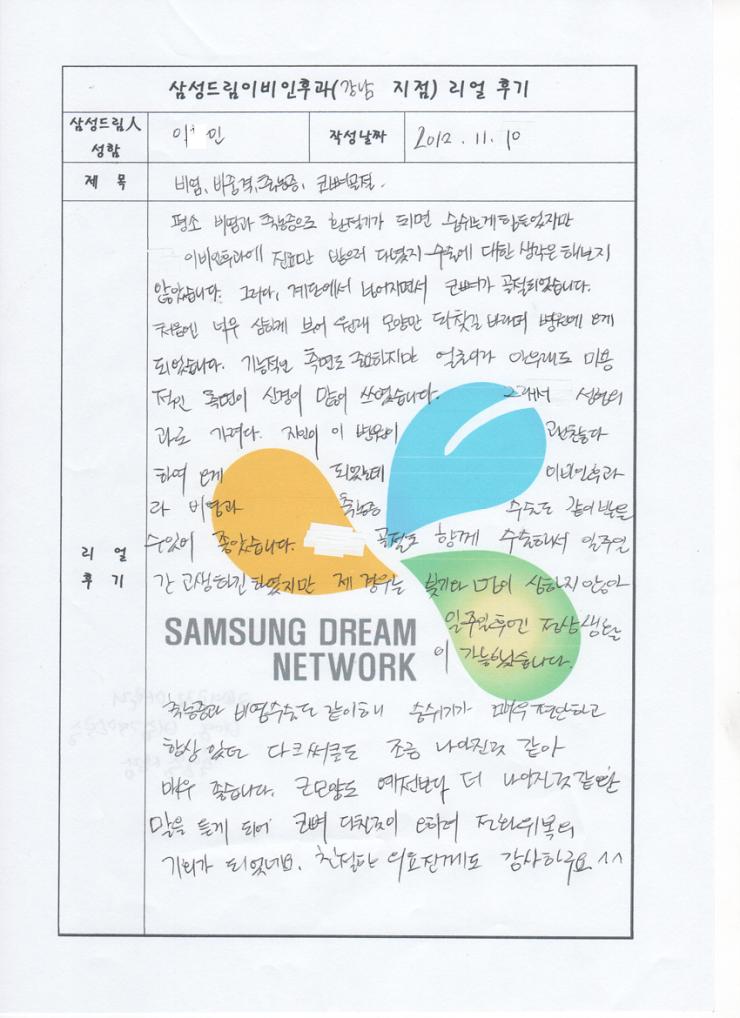 삼성드림이비인후과(강남 지점) 리얼 후기
삼성드림人 성함
이 민
작성날짜
2012. 11. 10
제 목
비염, 비중격, 축농증, 코뼈골절.
리 얼 후 기
평소 비염과 축농증으로 환절기가 되면 숨쉬는게 힘들었지만
이비인후과에 진료만 받으러 다녔지 수술에 대한 생각은 해보지
않았습니다. 그러다, 계단에서 넘어지면서 코뼈가 골절되었습니다.
처음엔 너무 심하게 부어 원래 모양만 되찾길 바라며 병원에 오게
되었습니다. 기능적인 측면도 중요하지만 얼굴이다 아무래도 미용
적인 측면이 신경이 많이 쓰였습니다. 그래서 성형외
과로 가려다. 지인이 이 병원이 괜찮다
하여 오게 되었는데 이비인후과
라 비염과 축농증 수술도 같이 받을
수있어 좋았습니다. 골절도 함께 수술해서 일주일
간 고생하긴 하였지만 제 경우는 붓기나 멍이 심하지 않아
일주일후엔 정상생활
이 가능했습니다.
SAMSUNG DREAM
NETWORK
축농증과 비염수술도 같이해 숨쉬기가 매우 편안하고
항상 있던 다크써클도 조금 나아진것 같아
매우 좋습니다. 코모양도 예전보다 더 나아진것같단
말을 듣게 되어 코뼈 다친것이 오히려 전화위복의
기회가 되었네요. 친절한 의료진께도 감사하구요 ^^